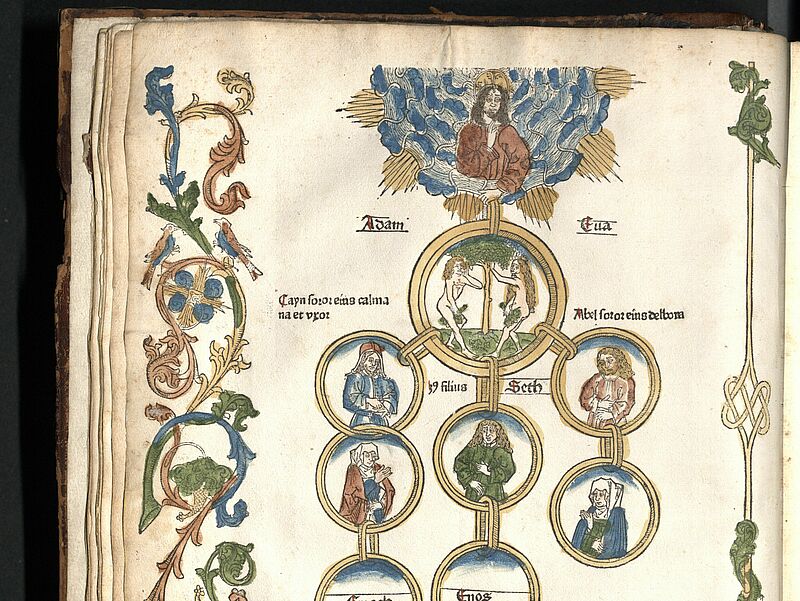 Adam
Eua
Cayn soror eius calma
na et vxor
Abel soror eius delbora
ꝯ filius
Seth
Enos